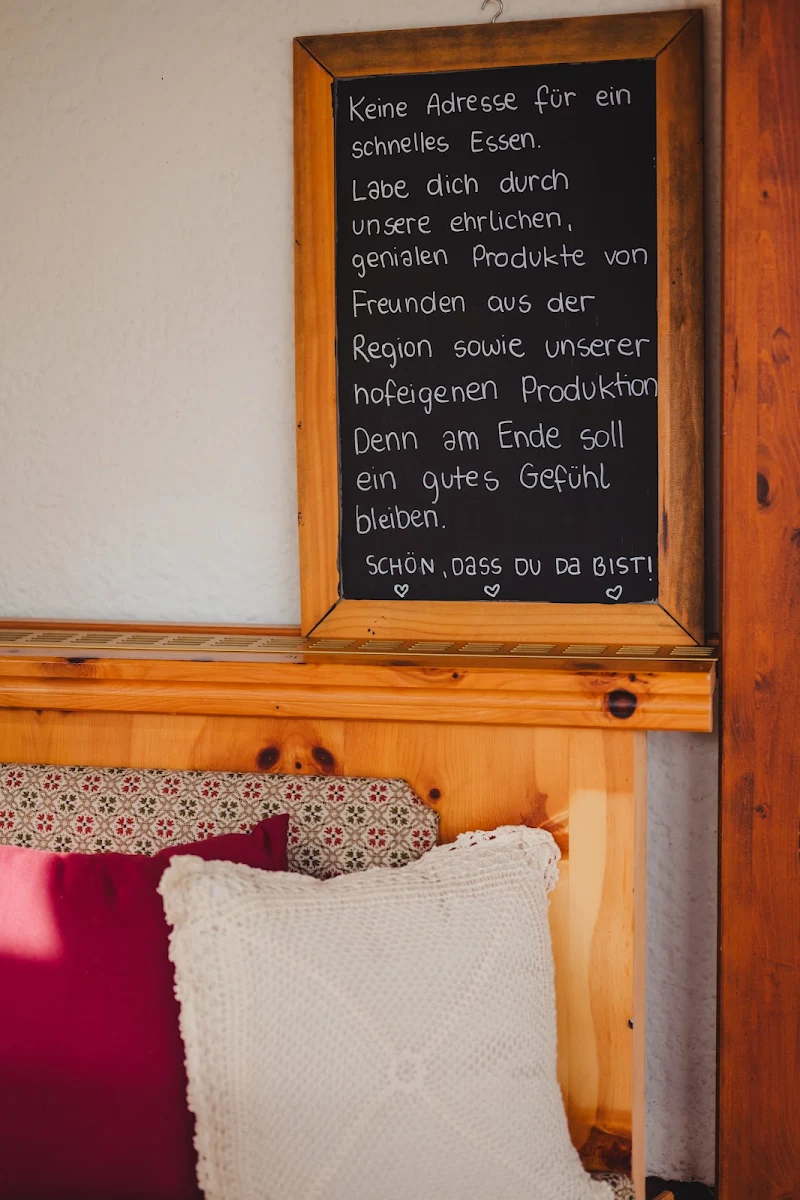 Keine Adresse für ein
schnelles Essen.
Labe dich durch
unsere ehrlichen,
genialen Produkte von
Freunden aus der
Region sowie unserer
hofeigenen Produktion
Denn am Ende soll
ein gutes Gefühl
bleiben.
SCHÖN, Dass DU Da BIST!